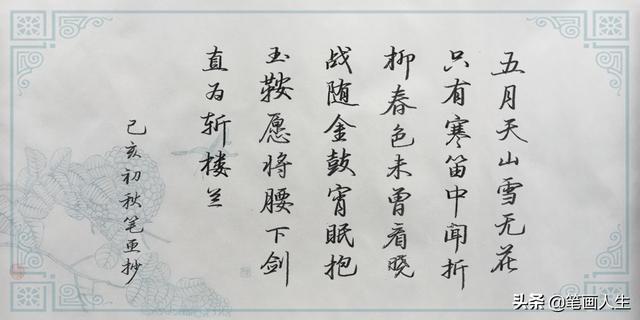 五月天山雪无花
只有寒笛中闻折
柳春色未曾看晓
战随金鼓宵眠抱
玉鞍愿将腰下剑
直为斩楼兰
己亥初秋笔画抄
头条 @笔画人生